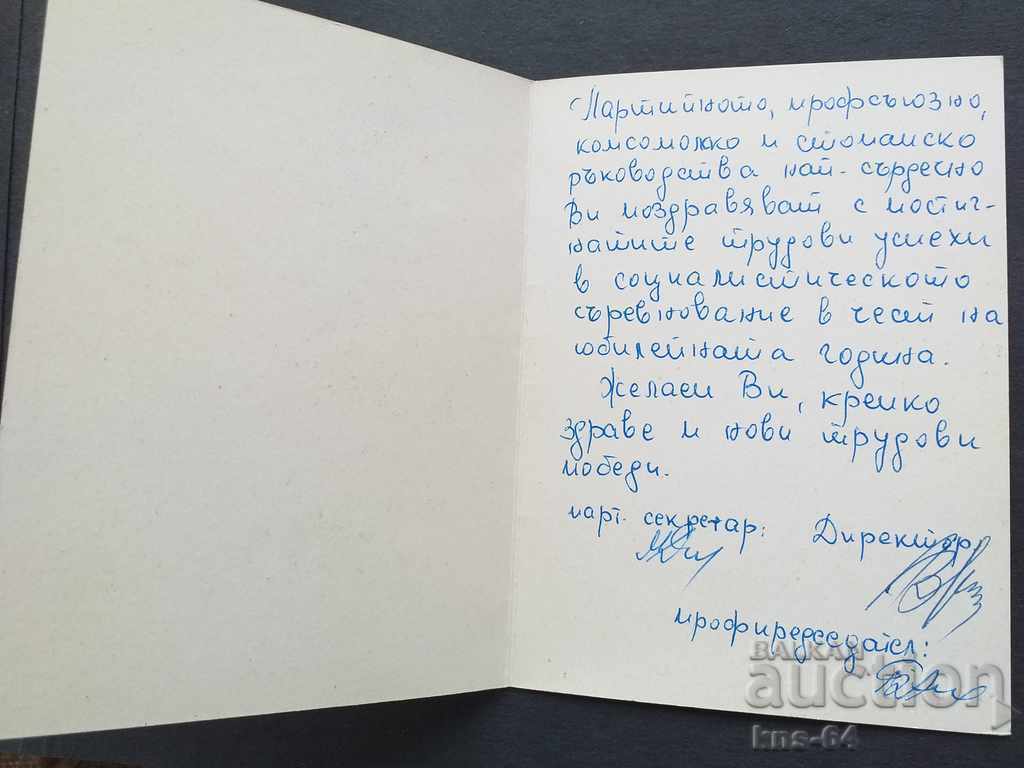 Партийното, профсъюзно,
комсомолко и стопанско
ръководства най-сърдечно
Ви поздравяват с постиг-
натите трудови успехи
в социалистическото
съревнование в чест на
юбилейната година.
Желаем Ви, крепко
здраве и нови трудови
победи.
парт. секретар: Директор:
профпредседател:
БАЛКАН
auction
kns-64